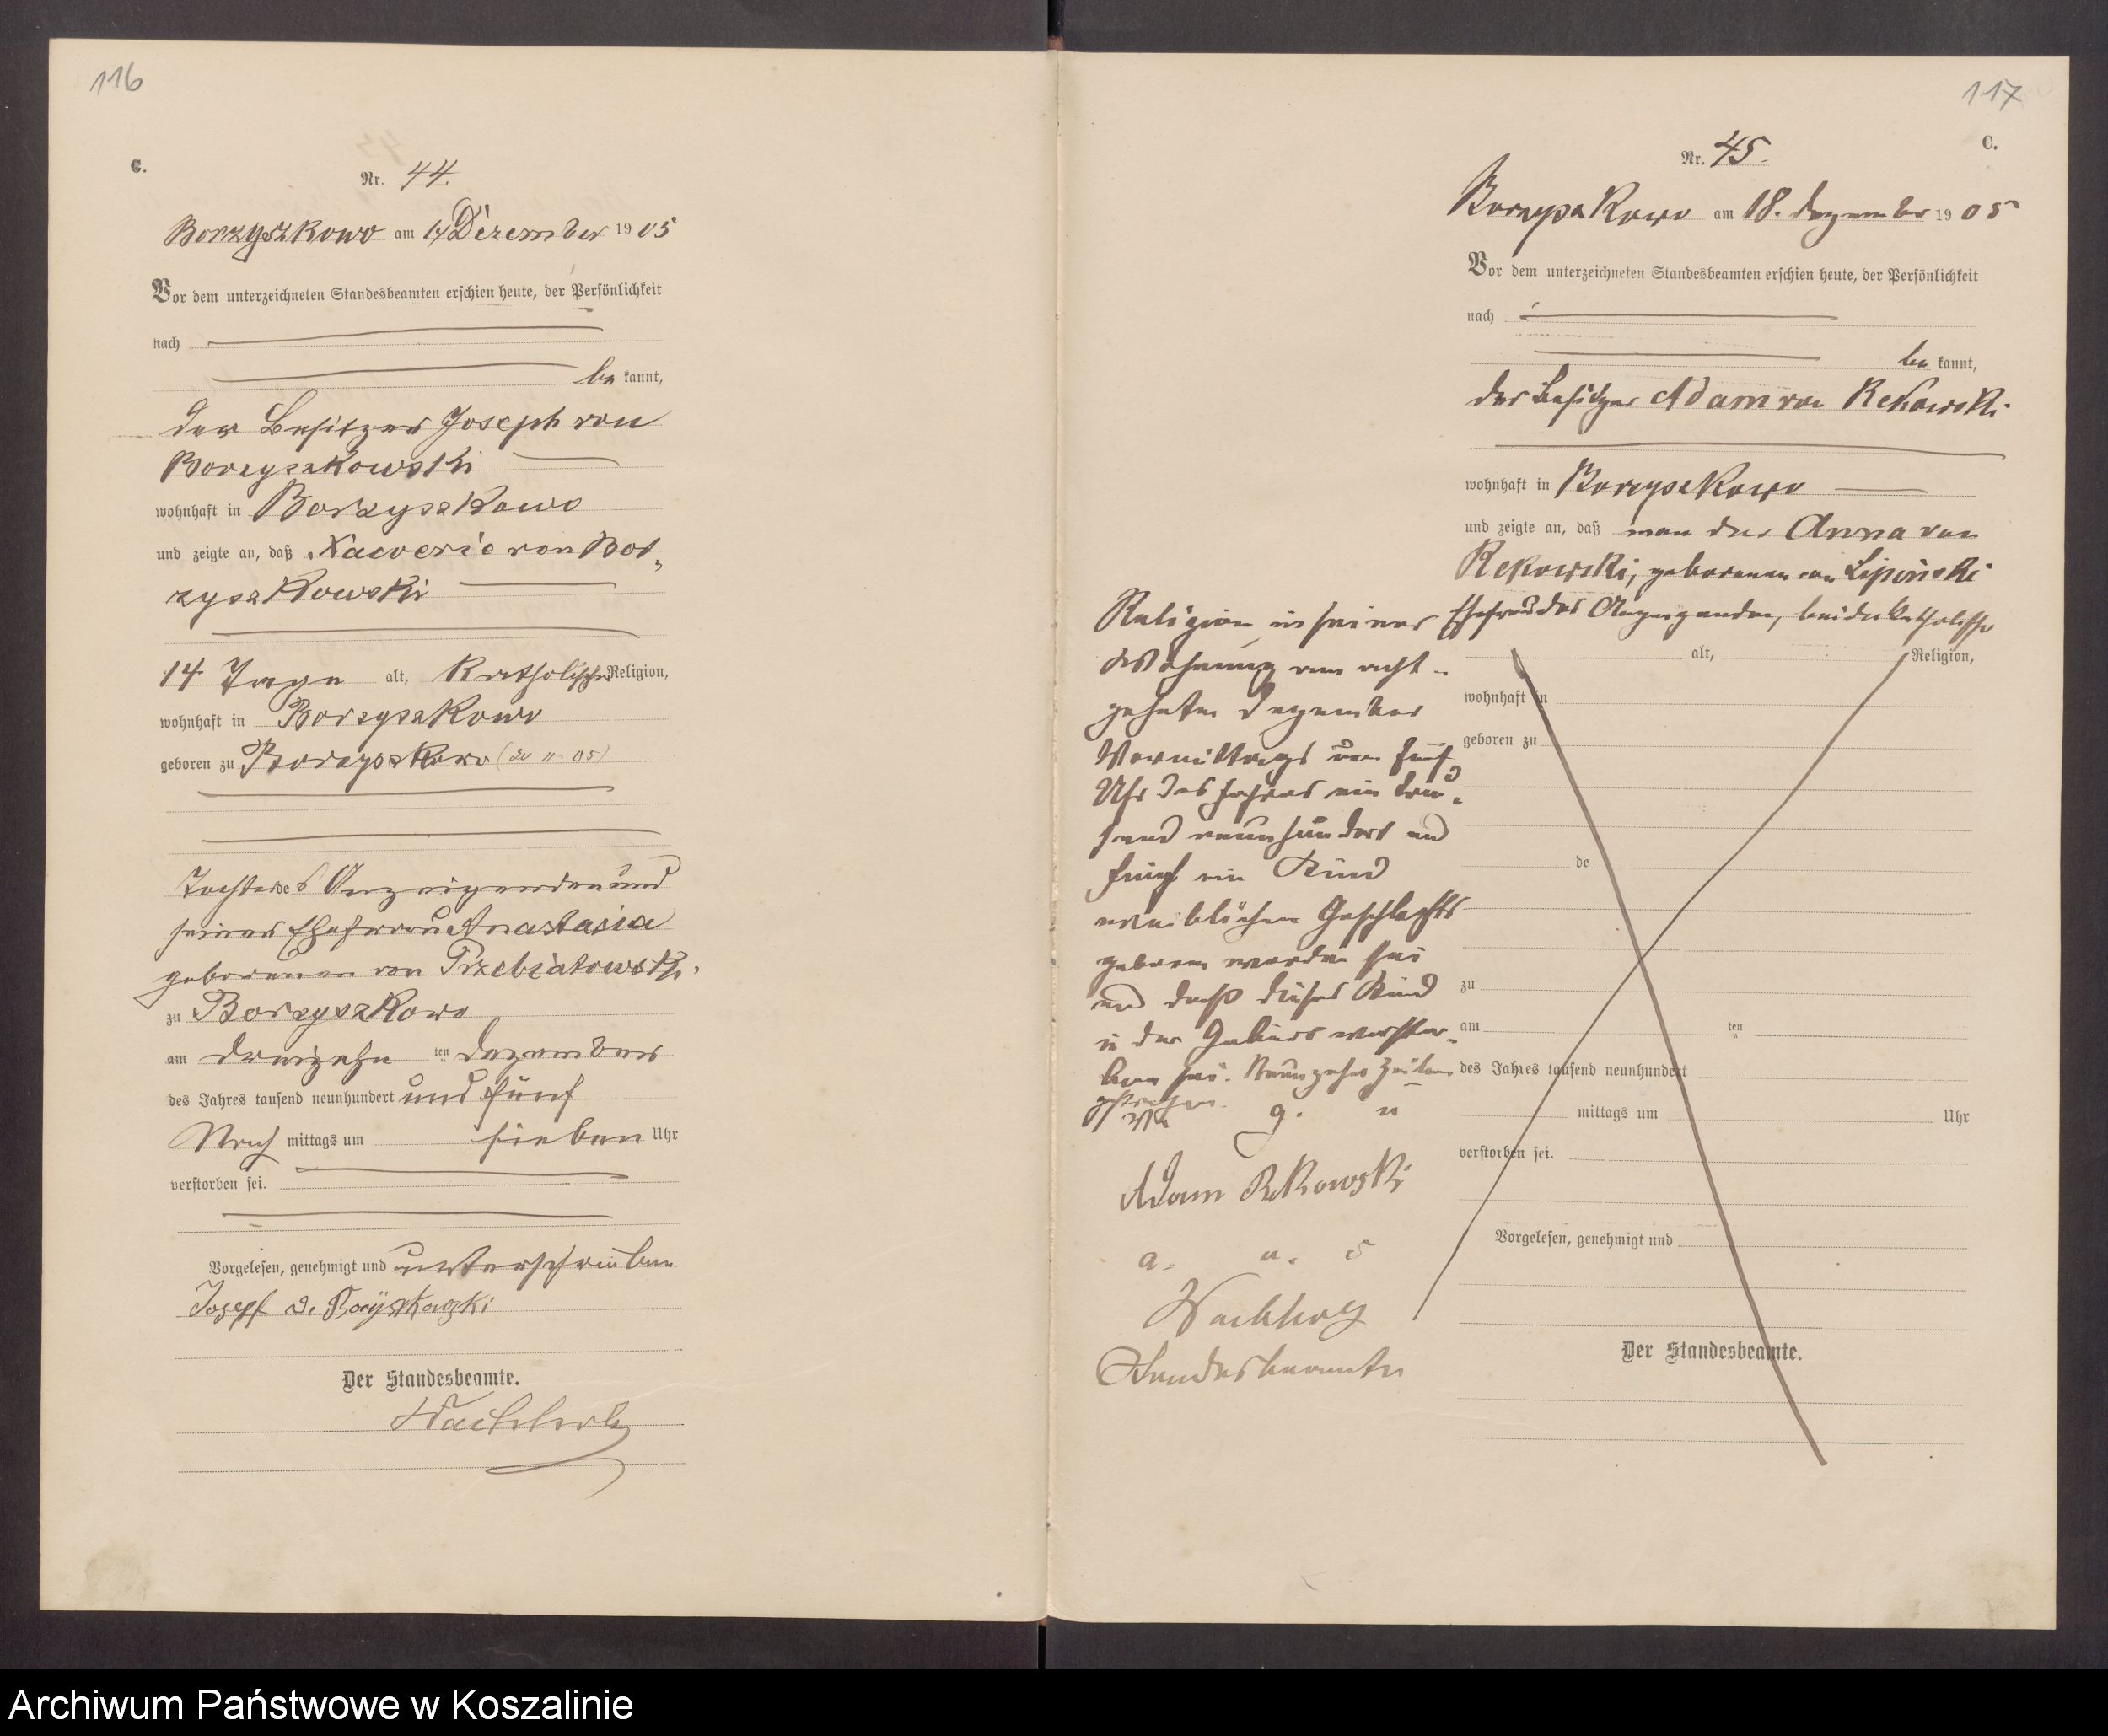 116
C.
Nr. 44.
Borzyszkowo am 14 Dezember 1905
Vor dem unterzeichneten Standesbeamten erschien heute, der Persönlichkeit
nach
be kannt,
der Besitzer Joseph von
Borzyszkowski
wohnhaft in Borzyszkowo
und zeigte an, daß Xaverie von Bor„
zyszkowski
14 Tage alt, Katholischer Religion,
wohnhaft in Borzyszkowo
geboren zu Borzyszkowo (30 11 05)
Tochter des Anzeigenden und
seiner Ehefrau Anastasia
geborenen von Przebiatowski
zu Borzyszkowo
am dreizehn ten Dezember
des Jahres tausend neunhundert und fünf
Nach mittags um sieben Uhr
verstorben sei.
Vorgelesen, genehmigt und unterschrieben
Josepf v. Borzyszkowski
Der Standesbeamte.
Wachholz
117
C.
Nr. 45.
Borzyszkowo am 18. Dezember 1905
Vor dem unterzeichneten Standesbeamten erschien heute, der Persönlichkeit
nach
be kannt,
der Besitzer Adam von Rekowski
wohnhaft in Borzyszkowo
und zeigte an, daß von der Anna von
Rekowski, geborenen von Lipinski
Ehefrau des Anzeigenden, beide katholischer
Religion in seiner
Wohnung am acht-
zehnten Dezember
Vormittags um fünf
Uhr des Jahres ein tau-
send neunhundert und
fünf ein Kind
weiblichen Geschlechts
geboren worden sei
und daß dieses Kind
in der Geburt verstor-
ben sei. Neunzehn Zeilen
gestrichen.
V. g. u
Adam Rekowski
a. u. s
Wachholz
Standesbeamter
alt, Religion,
wohnhaft in
geboren zu
de
zu
am ten
des Jahres tausend neunhundert
mittags um Uhr
verstorben sei.
Vorgelesen, genehmigt und
Der Standesbeamte.
Archiwum Państwowe w Koszalinie